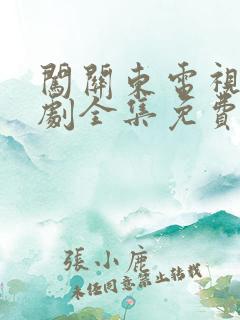 闖關東電視
劇全集免費
張小鹿
未經同意禁止轉載